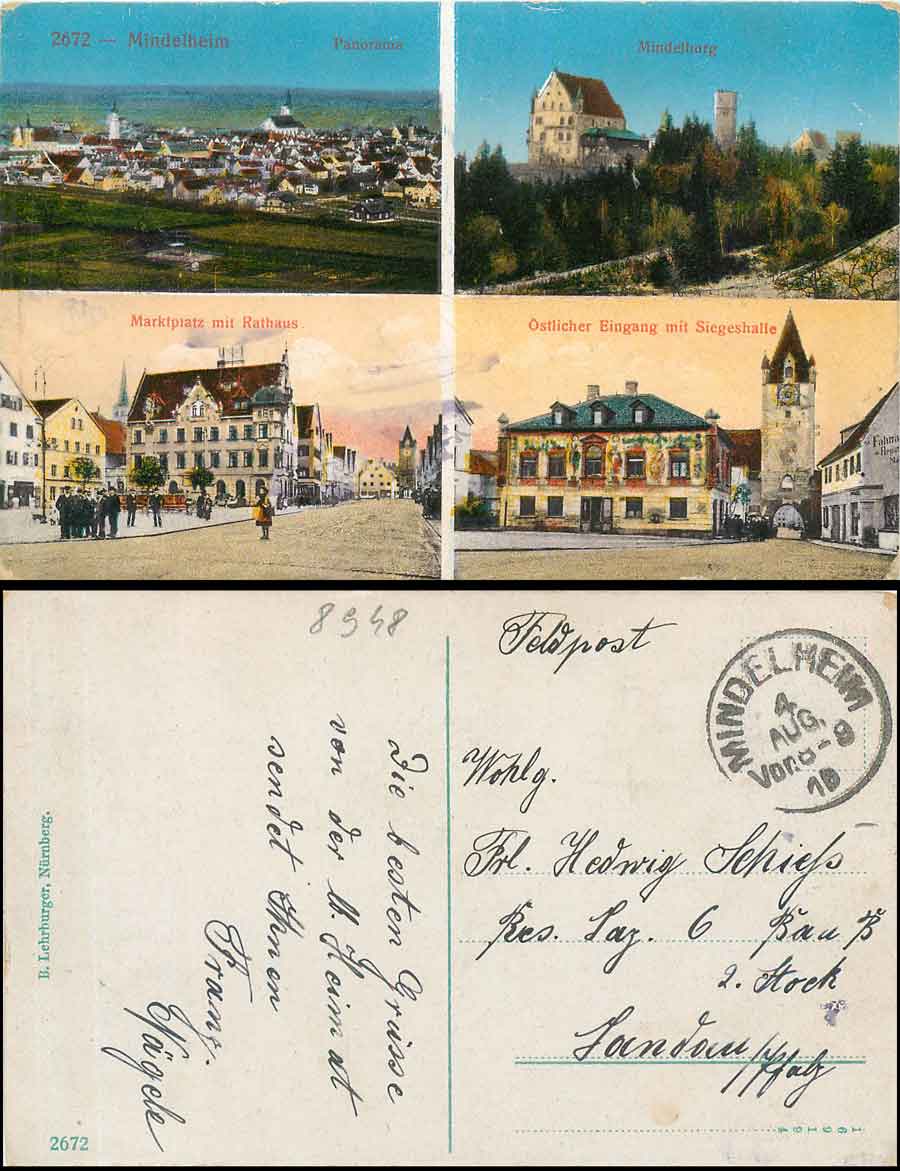 2672 — Mindelheim
Panorama
Mindelburg
Marktplatz mit Rathaus
Östlicher Eingang mit Siegeshalle
8948
Feldpost
MINDELHEIM
4
AUG.
Vor. 8-9
Wohlg.
Frl. Hedwig Schiess
Res. Laz. 6 Bau B
2. Stock
Landau
/Pfalz
Die besten Grüsse
von der lb. Heimat
sendet Ihnen
Franz.
Nägele
B. Lehrburger, Nürnberg.
2672